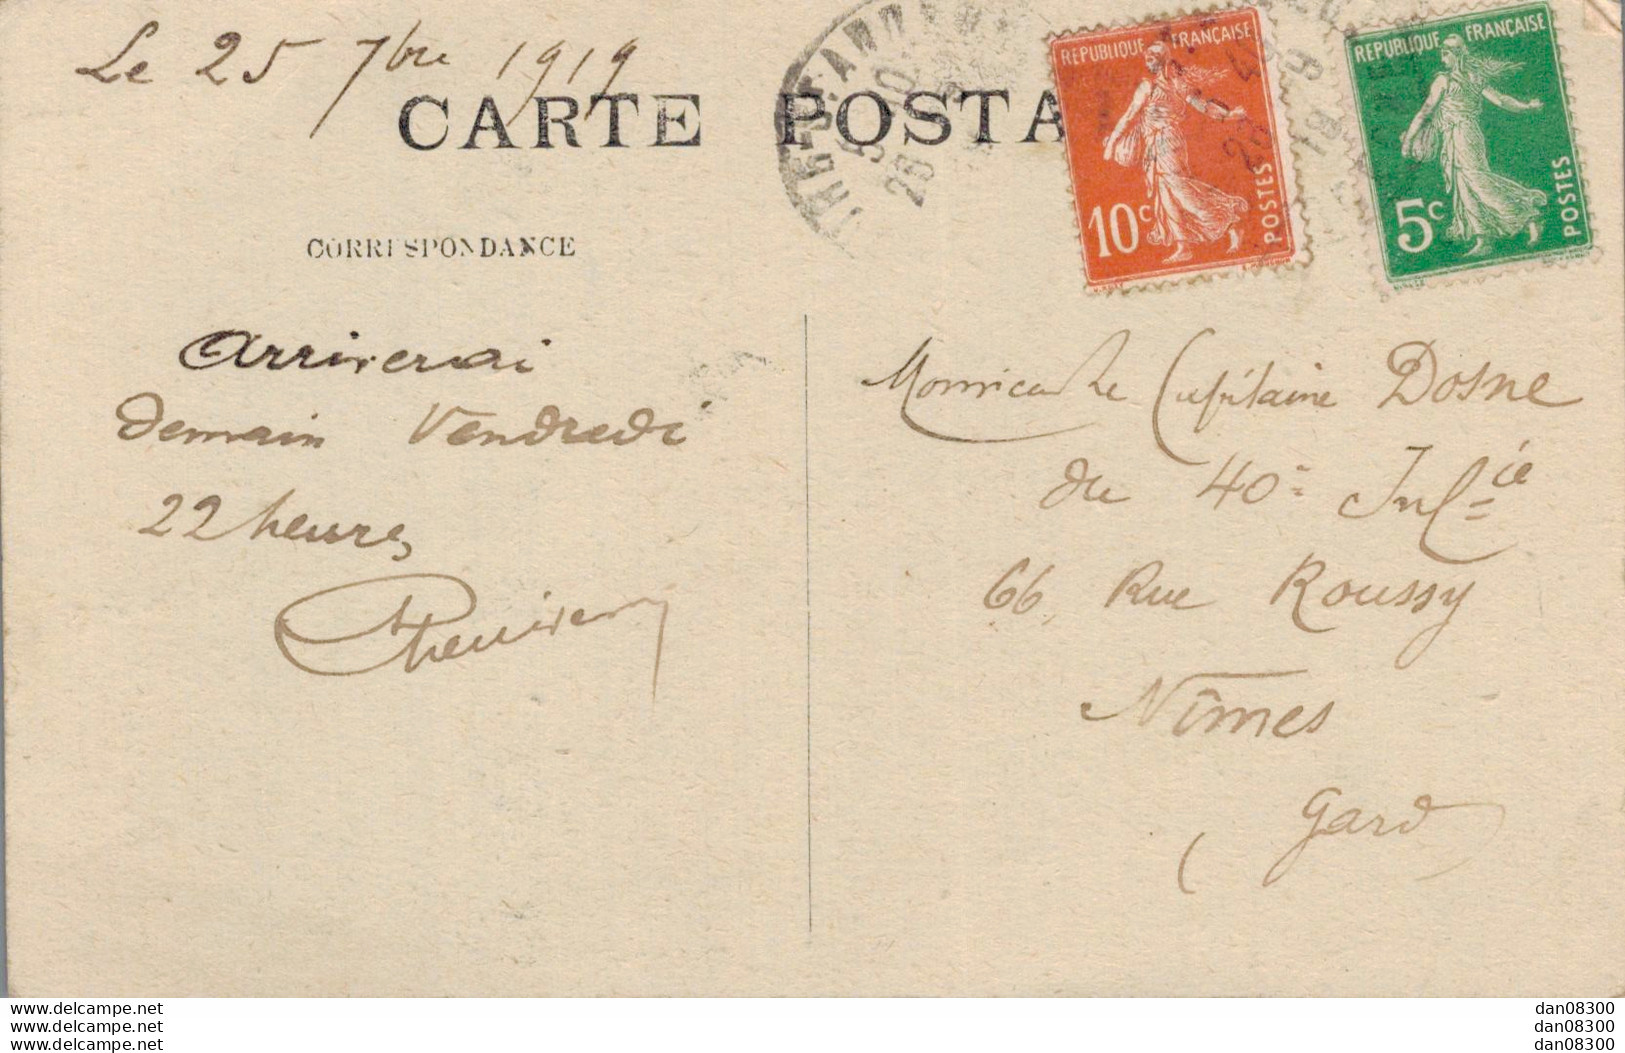 Le 25 7bre 1919
CARTE POSTA
CORRESPONDANCE
RÉPUBLIQUE FRANÇAISE
10c
POSTES
RÉPUBLIQUE FRANÇAISE
5c
POSTES
Arriverai
demain Vendredi
22 heures
Monsieur le Capitaine Dosne
du 40e Infie
66, Rue Roussy
Nîmes
Gard
www.delcampe.net
www.delcampe.net
www.delcampe.net
dan08300
dan08300
dan08300